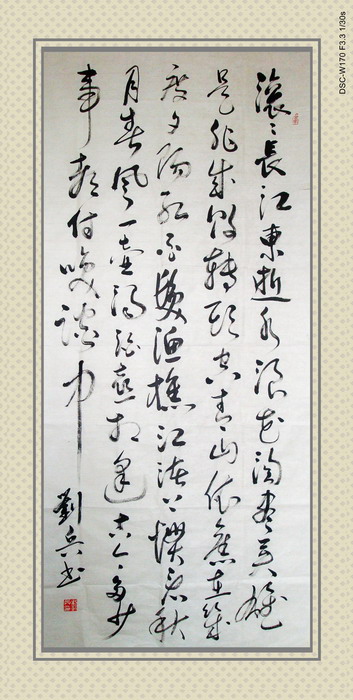 滾〻長江東逝水浪花淘盡英雄
是非成敗轉頭空青山依舊在幾
度夕陽紅白髮漁樵江渚上慣看秋
月春風一壺濁酒喜相逢古今多少
事都付笑談中
劉兵書
DSC-W170 F3.3 1/30s